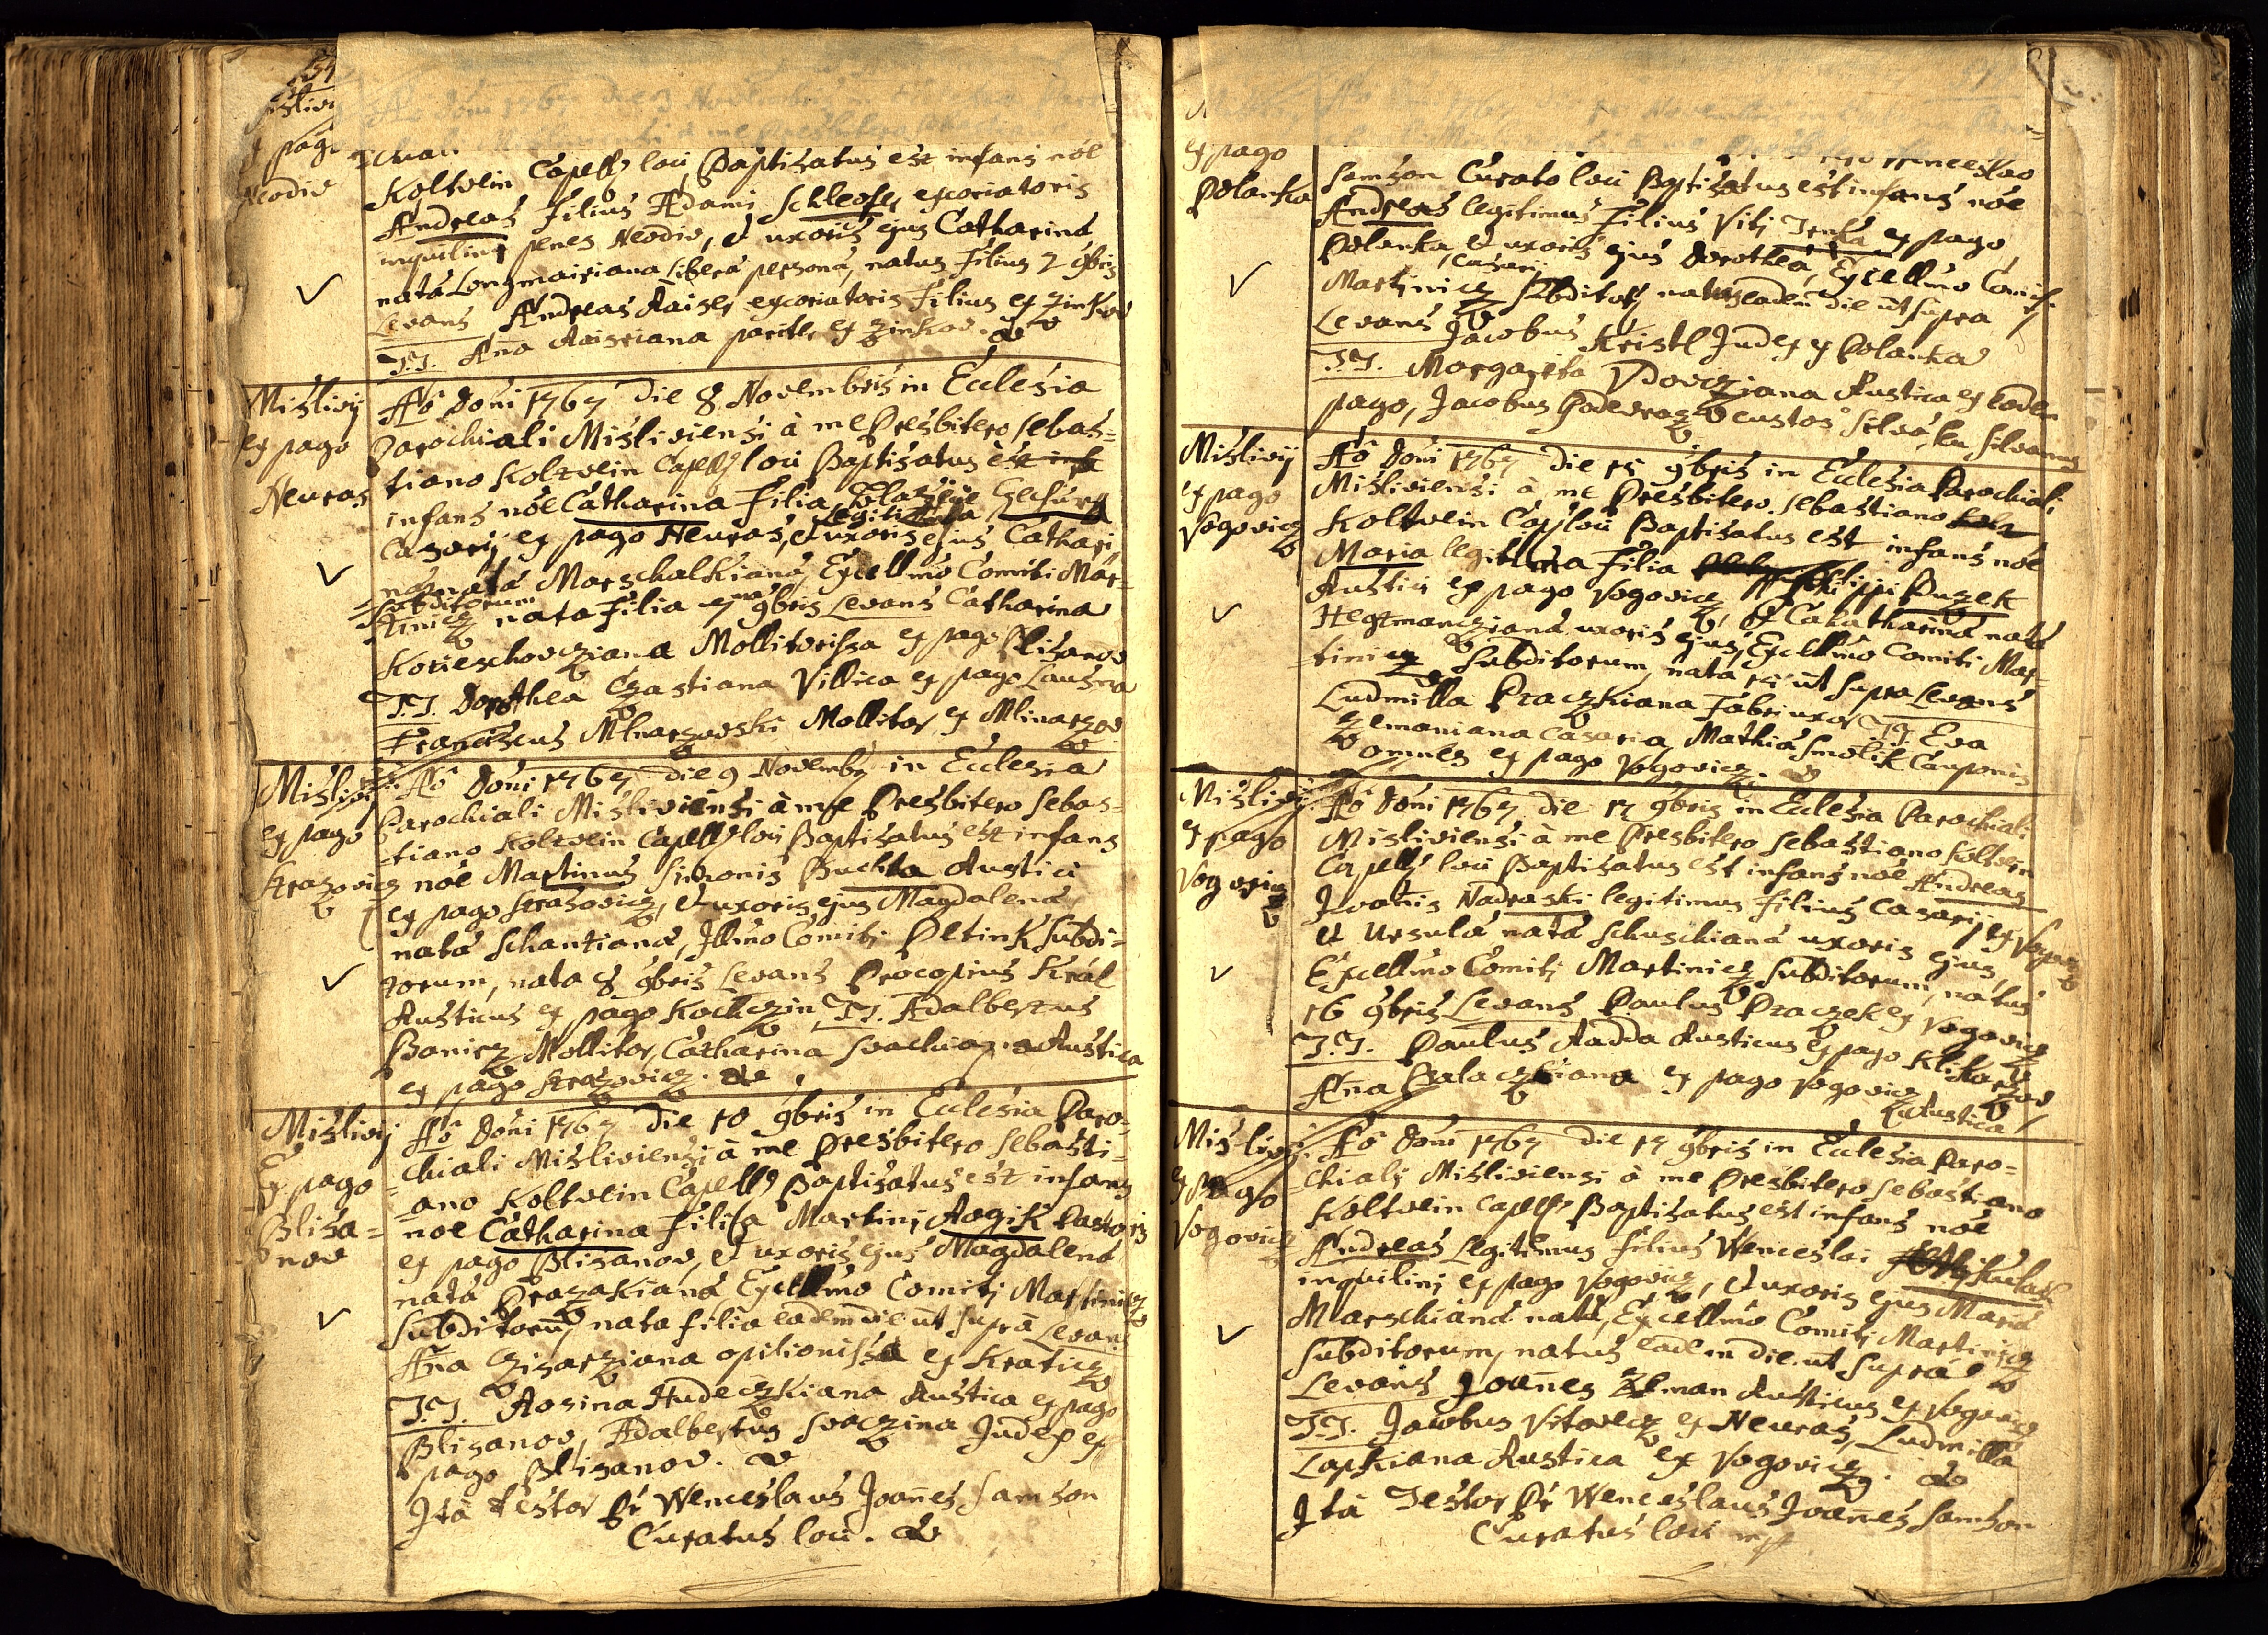 ex pago
Neodiv
Koltvein Capell loci Baptisatus est infans nõe
Andreas Filius Adami Schleofer excoriatoris
inquilini penes Neodiv, et uxoris ejus Catharina
nata Longmairiana libera persona, natus Filius 7 9bris
Levans Andreas Raiser excoriatoris Filius ex Zinkov
T.T. Aña Raiseriana pariter ex Zinkov.
Mislivij
ex pago
Neuras
Aõ Doni 1767 die 8 Novembris in Ecclesia
Parochiali Misliviensi à me Presbitero Sebas=
tiano Koltvein Capell loci Baptisatus est
infans nõe Catharina Filia
legitima
Casarij ex pago Neuras, et uxoris ejus Cathari
na nata Marschalkiana, Excellmo Comiti Mar=
Subditorum
tinicz nata Filia 9bris Levans Catharina
Mollitorissa ex pago Blisanov
T.T. Dorothea Czastiana Villica ex pago
Franciscus Mlnarzovski Mollitor ex Mlinarzov
Mislivij
ex pago
Strazovicz
Aõ Doni 1767 die 9 Novembr in Ecclesia
Parochiali Misliviensi à me Presbitero Sebas=
tiano Koltvein Capell loci Baptisatus est infans
nõe Martinus Simonis Buchta Rustici
ex pago Strazovicz, et uxoris ejus Magdalena
nata Schantiana, Illmo Comiti Oetink Subdi=
torum, nata 8 9bris Levans Procopius Král
Rusticus ex pago Kochczin T.T. Adalbertus
Banicz Mollitor, Catharina Rustica
ex pago Strazovicz.
Mislivij
Ex pago
Blisa=
nov
Aõ Doni 1767 die 10 9bris in Ecclesia Paro=
chiali Misliviensi à me Presbitero Sebasti=
ano Koltvein Capell Baptisatus est infans
noe Catharina Filia Martini Rozik Pastoris
ex pago Blisanov, et uxoris ejus Magdalena
nata Prazakiana Excellmo Comiti Martinicz
Subditorũ, nata filia eadem die ut supra Levans
Aña Czisarziana opilionissa ex Kraticz
T.T. Rosina Hudeczkiana Rustica ex pago
Blisanov, Adalbertus Svaczina Judex ex
pago Blisanov.
Ità Testor Pr Wenceslaus Joañes Samson
Curatus loci.
ex pago
Polanka
Wenceslao
Samson Curato loci Baptisatus est infans nõe
Andreas legitimus Filius Viti Trnka ex pago
Polanka, et uxoris ejus Dorothea, Excellmo Comiti
Casarij
Martinicz Subditor natus eadem die ut supra
Levans Jacobus Kristl Judex ex Polanka
T.T. Margareta Vdovicziana Rustica ex eodem
pago, Jacobus custos Silva, seu Silvanus
Mislivij
ex pago
Vogovicz
Aõ Doni 1767 die 15 9bris in Ecclesia Parochiali
Misliviensi à me Presbitero Sebastiano
Koltvein Cap loci Baptisatus est infans nõe
Maria legitima Filia Philippi Duzek
Rustici ex pago Vogovicz, et Catharina nata
Hegtmancziana uxoris ejus, Excellmo Comiti Mar=
tinicz Subditorum, nata 15 ut supra Levans
Ludmilla Praczkiana Fabri uxor T.T. Eva
Zemaniana Casaria, Mathia Smolik Cauponis
omnes ex pago Vogovicz.
Mislivij
ex pago
Vogovicz
Aõ Doni 1767 die 17 9bris in Ecclesia Parochiali
Misliviensi à me Presbitero Sebastiano Koltvein
Capell loci Baptisatus est infans nõe Andreas
Joañis Nadraski legitimus filius Casarij ex
et Ursula nata Schuschiana uxoris ejus,
Excellmo Comiti Martinicz Subditorum, natus
16 9bris Levans Paulus Praczek ex Vogovicz
T.T. Paulus Radda Rusticus ex pago Klikarzov
Aña ex pago Vogovicz
Rustica
Mislivij
ex pago
Vogovicz
Aõ Doni 1767 die 17 9bris in Ecclesia Paro=
chiali Misliviensi à me Presbitero Sebastiano
Koltvein Capell Baptisatus est infans nõe
Andreas Legitimus Filius Wenceslai
inquilini ex pago Vogovicz, et uxoris ejus Maria
Marschiana nata, Excellmo Comiti Martinicz
Subditorum, natus eadem die ut supra
Levans Joañes Zeman Rusticus ex Vogovicz
T.T. Jacobus Vitovecz ex Neuras, Ludmilla
Lapkiana Rustica ex Vogovicz.
Ità Testor Pr Wenceslaus Joañes Samson
Curatus loci